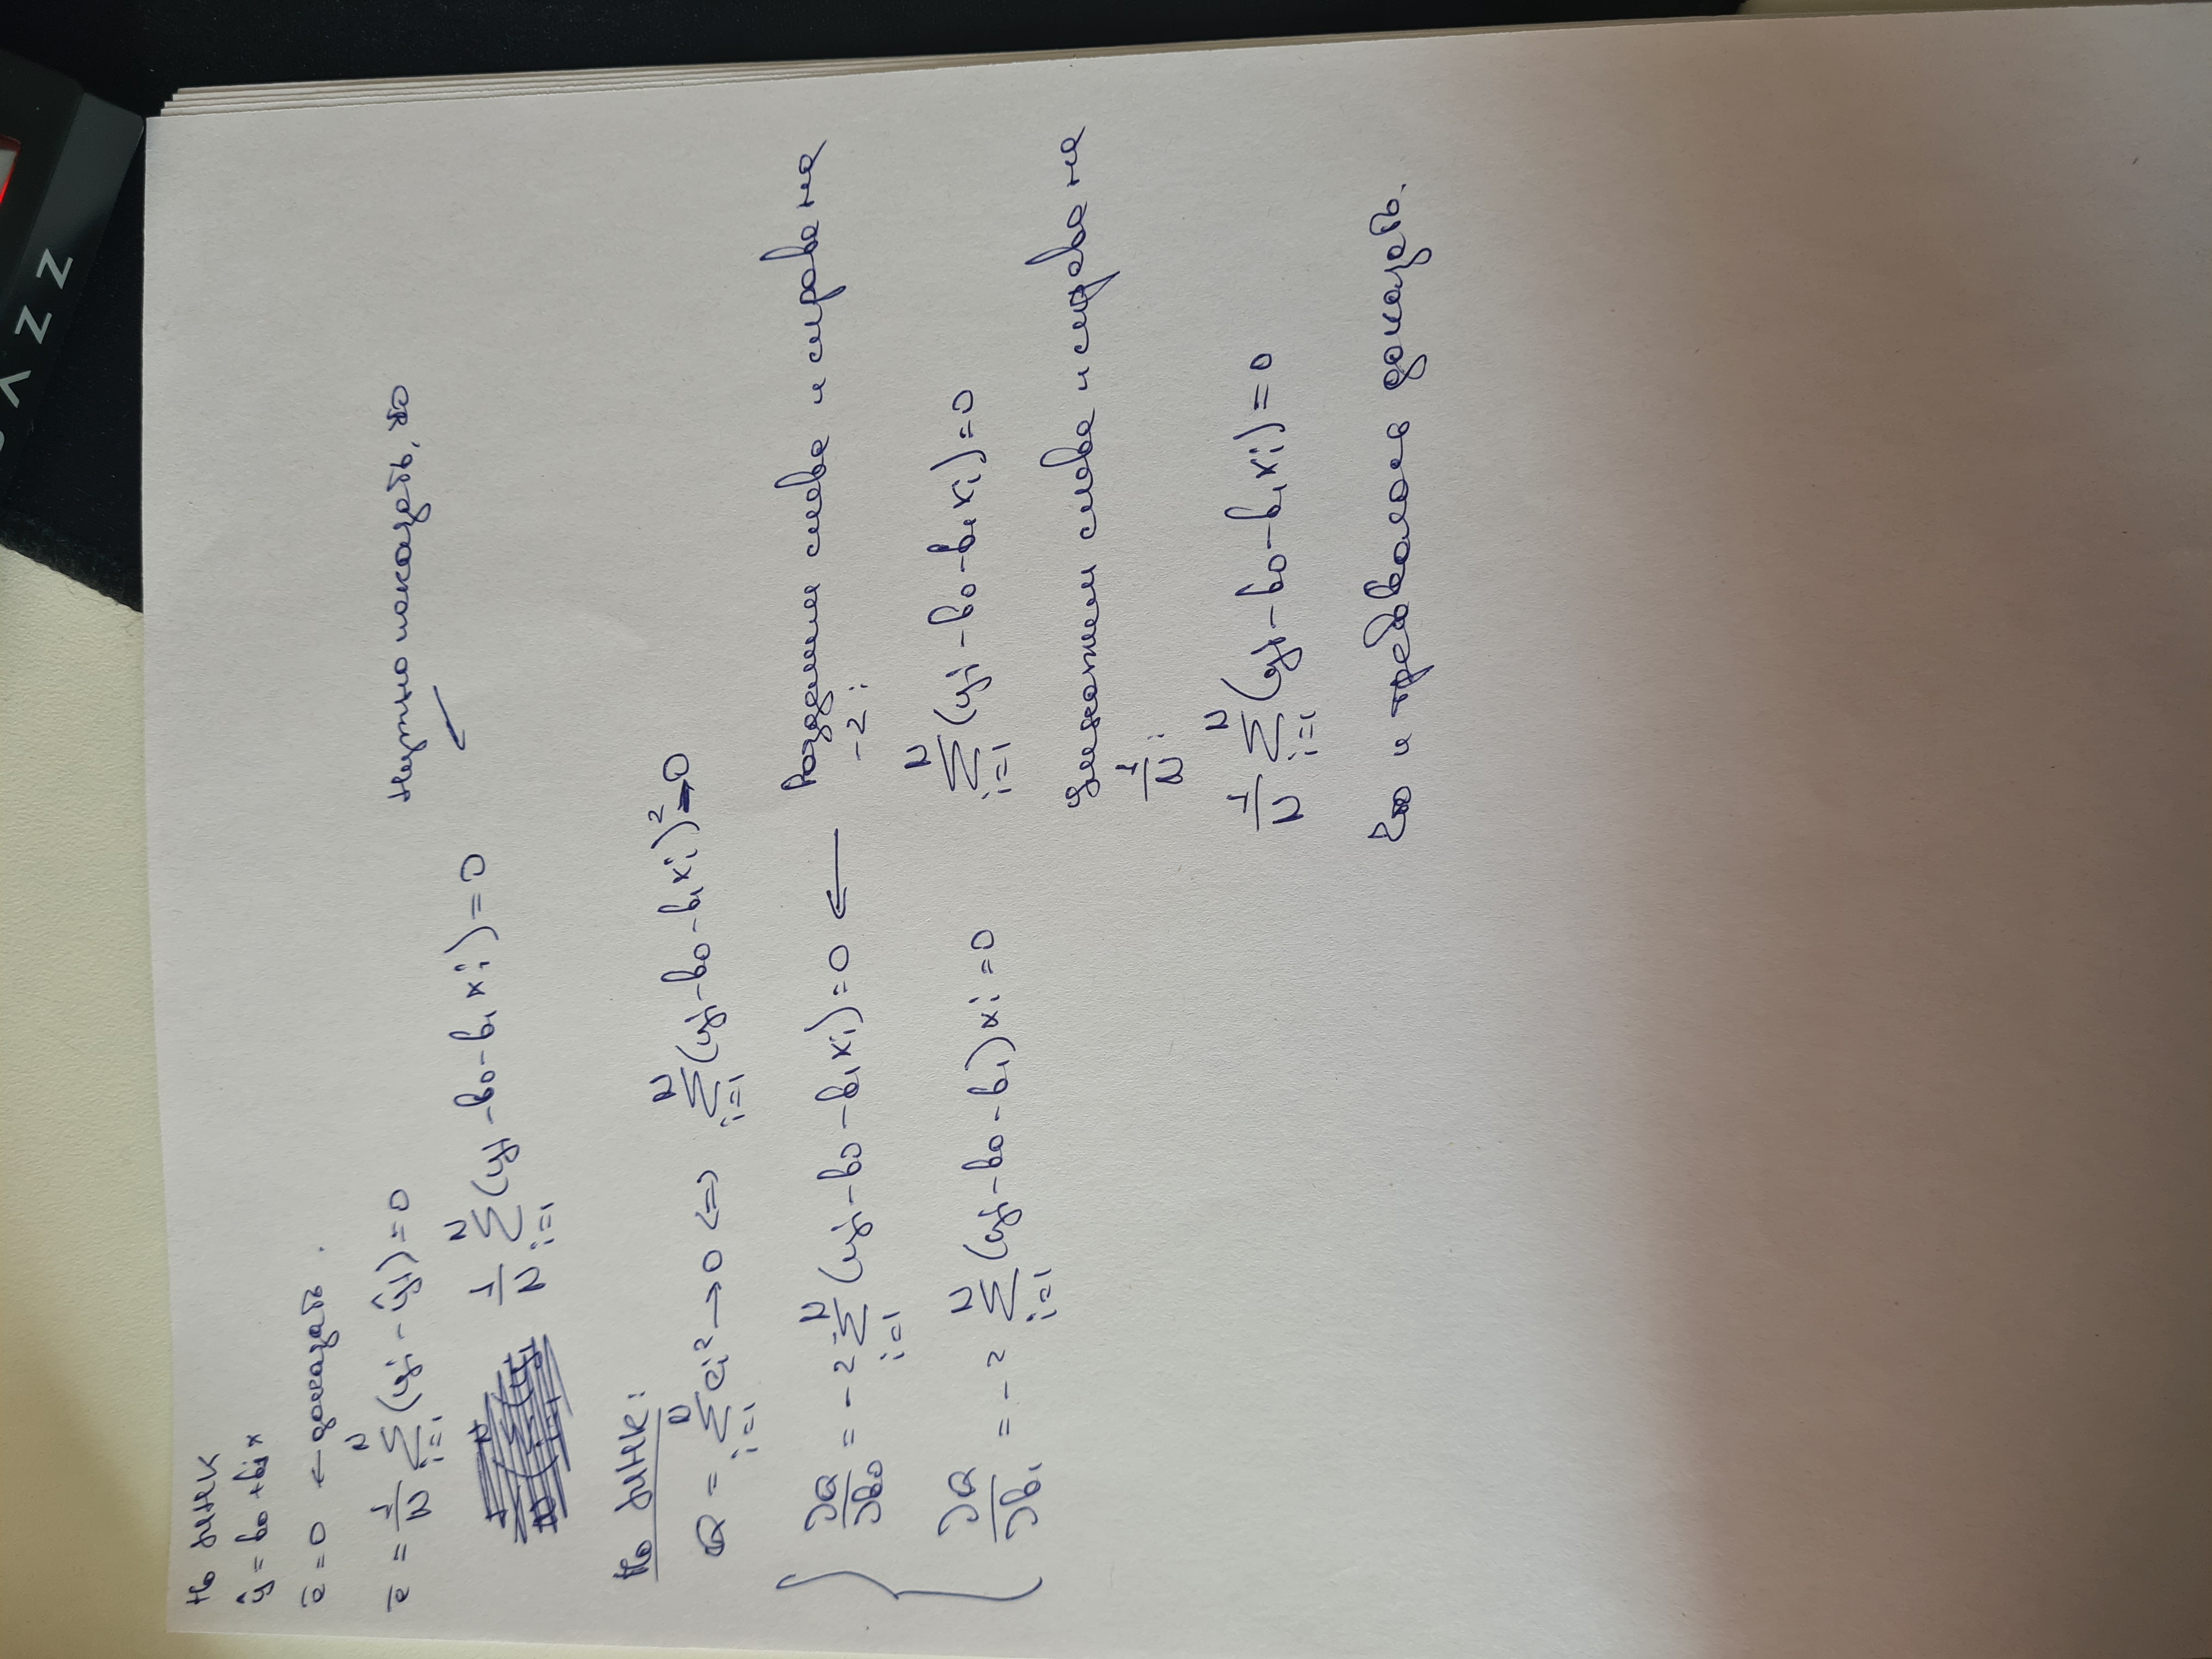 ZZV
По МНК
ŷ = b₀ + b₁x
ē = 0 ← доказать.
ē = 1/N N∑i=1 (yi - ŷi) = 0
Нужно показать, что
1/N N∑i=1 (yi - b₀ - b₁xi) = 0 ←
По МНК:
Q = N∑i=1 ei² → 0 <=> N∑i=1 (yi - b₀ - b₁xi)² → 0
∂Q/∂b₀ = -2 N∑i=1 (yi - b₀ - b₁xi) = 0 ←
∂Q/∂b₁ = -2 N∑i=1 (yi - b₀ - b₁)xi = 0
Разделим слева и справа на
-2:
N∑i=1 (yi - b₀ - b₁xi) = 0
Умножим слева и справа на
1/N:
1/N N∑i=1 (yi - b₀ - b₁xi) = 0
Что и требовалось доказать.